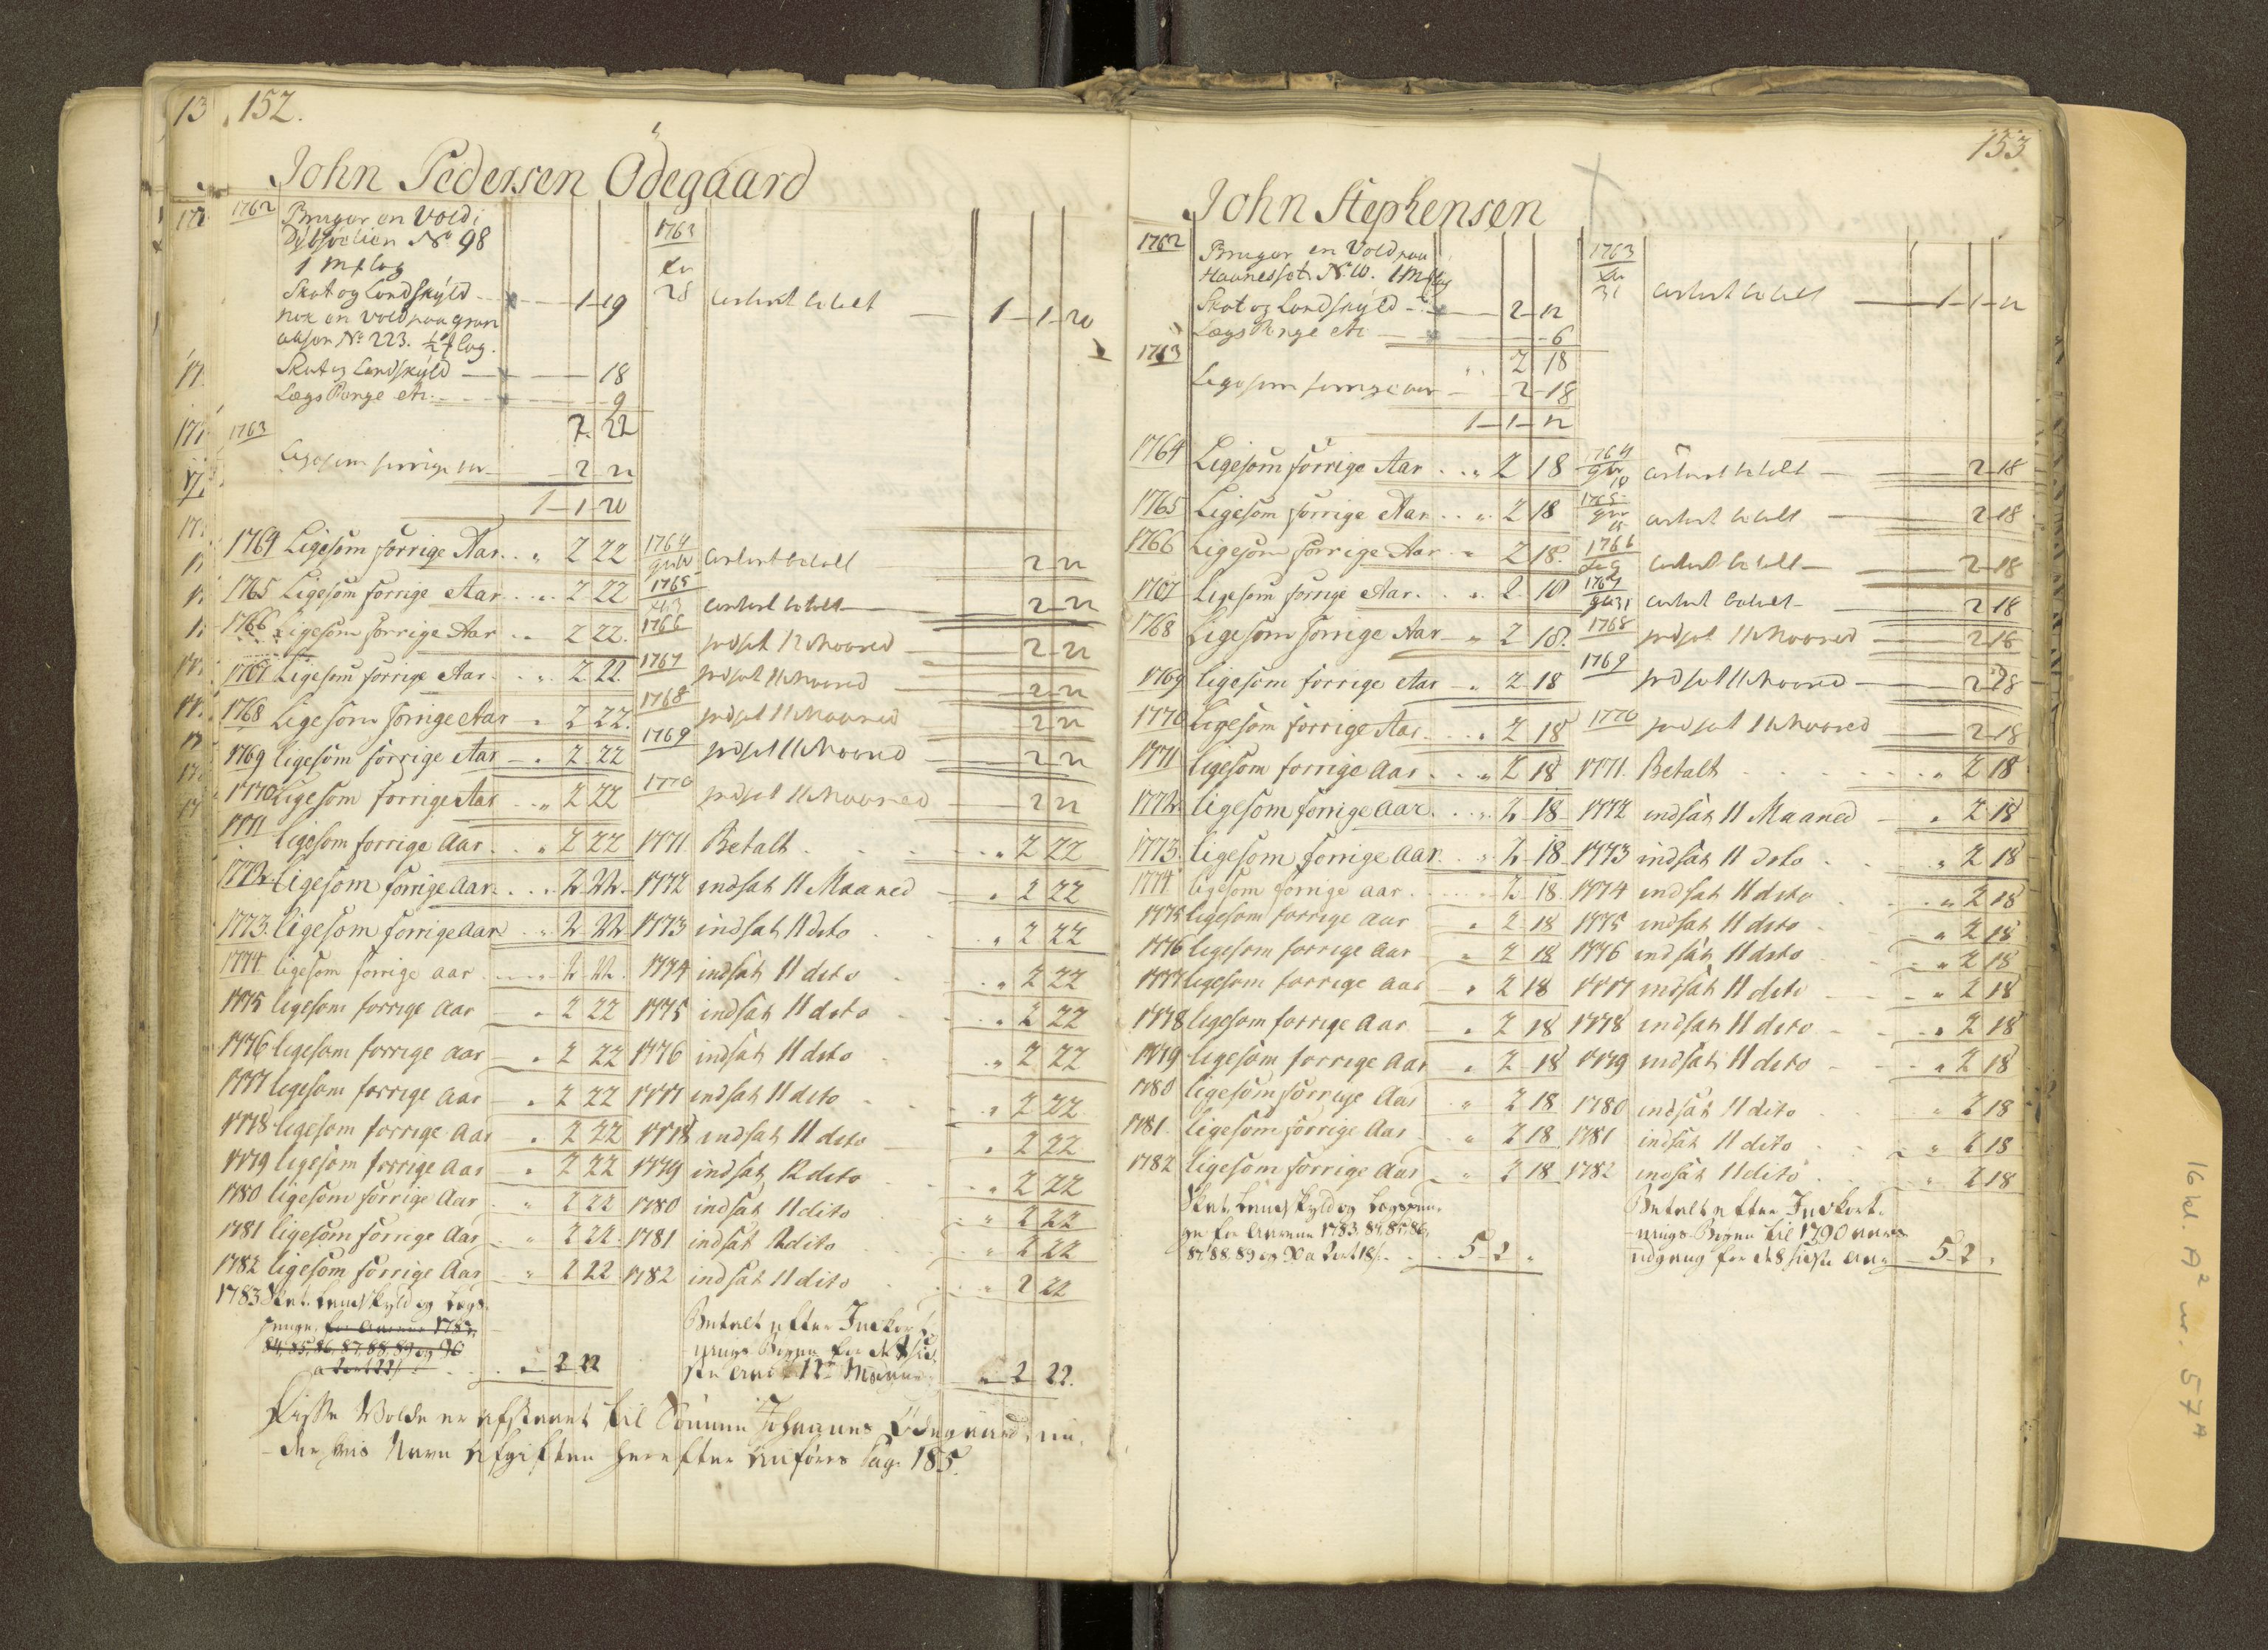 152.
John Pedersen Ödegaard
1762 Bruger en Vold i
N° 98
1
Skat og Landskÿld 1 19
nok en Vold paa
N° 223. ½
Skat og Landskÿld 18
LægsPenge etc. 9
2 22
1763
Ligesom forrige aar 2 22
1 1 20
1764 Ligesom forrige Aar. " 2 22
1765 Ligesom forrige Aar " 2 22
1766 Ligesom forrige Aar 2 22.
1767 Ligesom forrige Aar " 2 22
1768 Ligesom forrige Aar " 2 22.
1769 ligesom forrige Aar " 2 22
1770 Ligesom forrige Aar " 2 22
1771 ligesom forrige Aar " 2 22
1772. Ligesom forrige Aar " 2 22
1773. ligesom forrige Aar " 2 22
1774 ligesom forrige aar 2 22
1775 ligesom forrige Aar " 2 22
1776 ligesom forrige aar " 2 22
1777 ligesom forrige Aar " 2 22
1778 ligesom forrige Aar " 2 22
1779 ligesom forrige Aar " 2 22
1780 ligesom forrige Aar " 2 22
1781 ligesom forrige Aar " 2 22
1782 ligesom forrige Aar " 2 22
1783 Skat. Landskyld og Lægs-
penge, for Aarene 1783,
84, 85, 86, 87, 88, 89 og 90
a 2 ort 22 s " 2 22
1763
28 betalt 1 1 20
1764 betalt 2 22
1765 betalt 2 22
1766 indsat 12 Maaned 2 22
1767 indsat 11 Maaned 2 22
1768 indsat 11 Maaned 2 22
1769 indsat 11 Maaned 2 22
1770 indsat 11 Maaned 2 22
1771 Betalt " 2 22
1772 indsat 11 Maaned " 2 22
1773 indsat 11 dito " 2 22
1774 indsat 11 dito " 2 22
1775 indsat 11 dito " 2 22
1776 indsat 11 dito " 2 22
1777 indsat 11 dito " 2 22
1778 indsat 11 dito " 2 22
1779 indsat 12 dito " 2 22
1780 indsat 11 dito " 2 22
1781 indsat 12 dito " 2 22
1782 indsat 11 dito " 2 22
Betalt efter Indkort-
nings Bogen for
ste Aar " 2 22.
Disse Volde er afskrevet til Sönnen Johannes Ödegaard, un-
der hvis Navn Afgiften herefter anföres Pag. 185.
153
John Stephensen
1762 Bruger en Vold paa
N° 10. 1
Skat og Landskÿld 2 12
LægsPenge etc 6
2 18
1763
Ligesom forrige aar 2 18
1 1 12
1764 Ligesom forrige Aar " 2 18
1765 Ligesom forrige Aar " 2 18
1766 Ligesom forrige Aar " 2 18.
1767 Ligesom forrige Aar " 2 18
1768 Ligesom forrige Aar " 2 18.
1769 ligesom forrige Aar " 2 18
1770 ligesom forrige Aar " 2 18
1771 ligesom forrige Aar " 2 18
1772 ligesom forrige Aar " 2 18
1773. ligesom forrige Aar " 2 18
1774 ligesom forrige aar 2 18
1775 ligesom forrige Aar " 2 18
1776 ligesom forrige Aar " 2 18
1777 ligesom forrige Aar " 2 18
1778 ligesom forrige Aar " 2 18
1779 ligesom forrige Aar " 2 18
1780 ligesom forrige Aar " 2 18
1781 ligesom forrige Aar " 2 18
1782 ligesom forrige Aar " 2 18
Skat, Landskyld og Lægspen-
ge for Aarene 1783. 84. 85. 86,
87. 88. 89 og 90 a 2 ort 18 s. 5 2 "
1763
31 betalt 1 1 12
1764 betalt 2 18
1765 betalt 2 18
1766 betalt 2 18
1767 betalt 2 18
1768 indsat 11 Maaned 2 18
1769 indsat 11 Maaned 2 18
1770 indsat 11 Maaned 2 18
1771. Betalt " 2 18
1772 indsat 11 Maaned " 2 18
1773 indsat 11 dito " 2 18
1774 indsat 11 dito " 2 18
1775 indsat 11 dito " 2 18
1776 indsat 11 dito " 2 18
1777 indsat 11 dito " 2 18
1778 indsat 11 dito " 2 18
1779 indsat 11 dito " 2 18
1780 indsat 11 dito " 2 18
1781 indsat 11 dito " 2 18
1782 indsat 11 dito " 2 18
Betalt efter Indkort-
nings-Bogen til 1790 aars
udgang for de 8 sidste Aar 5 2 "
16 kl. A² nr. 57ᴬ